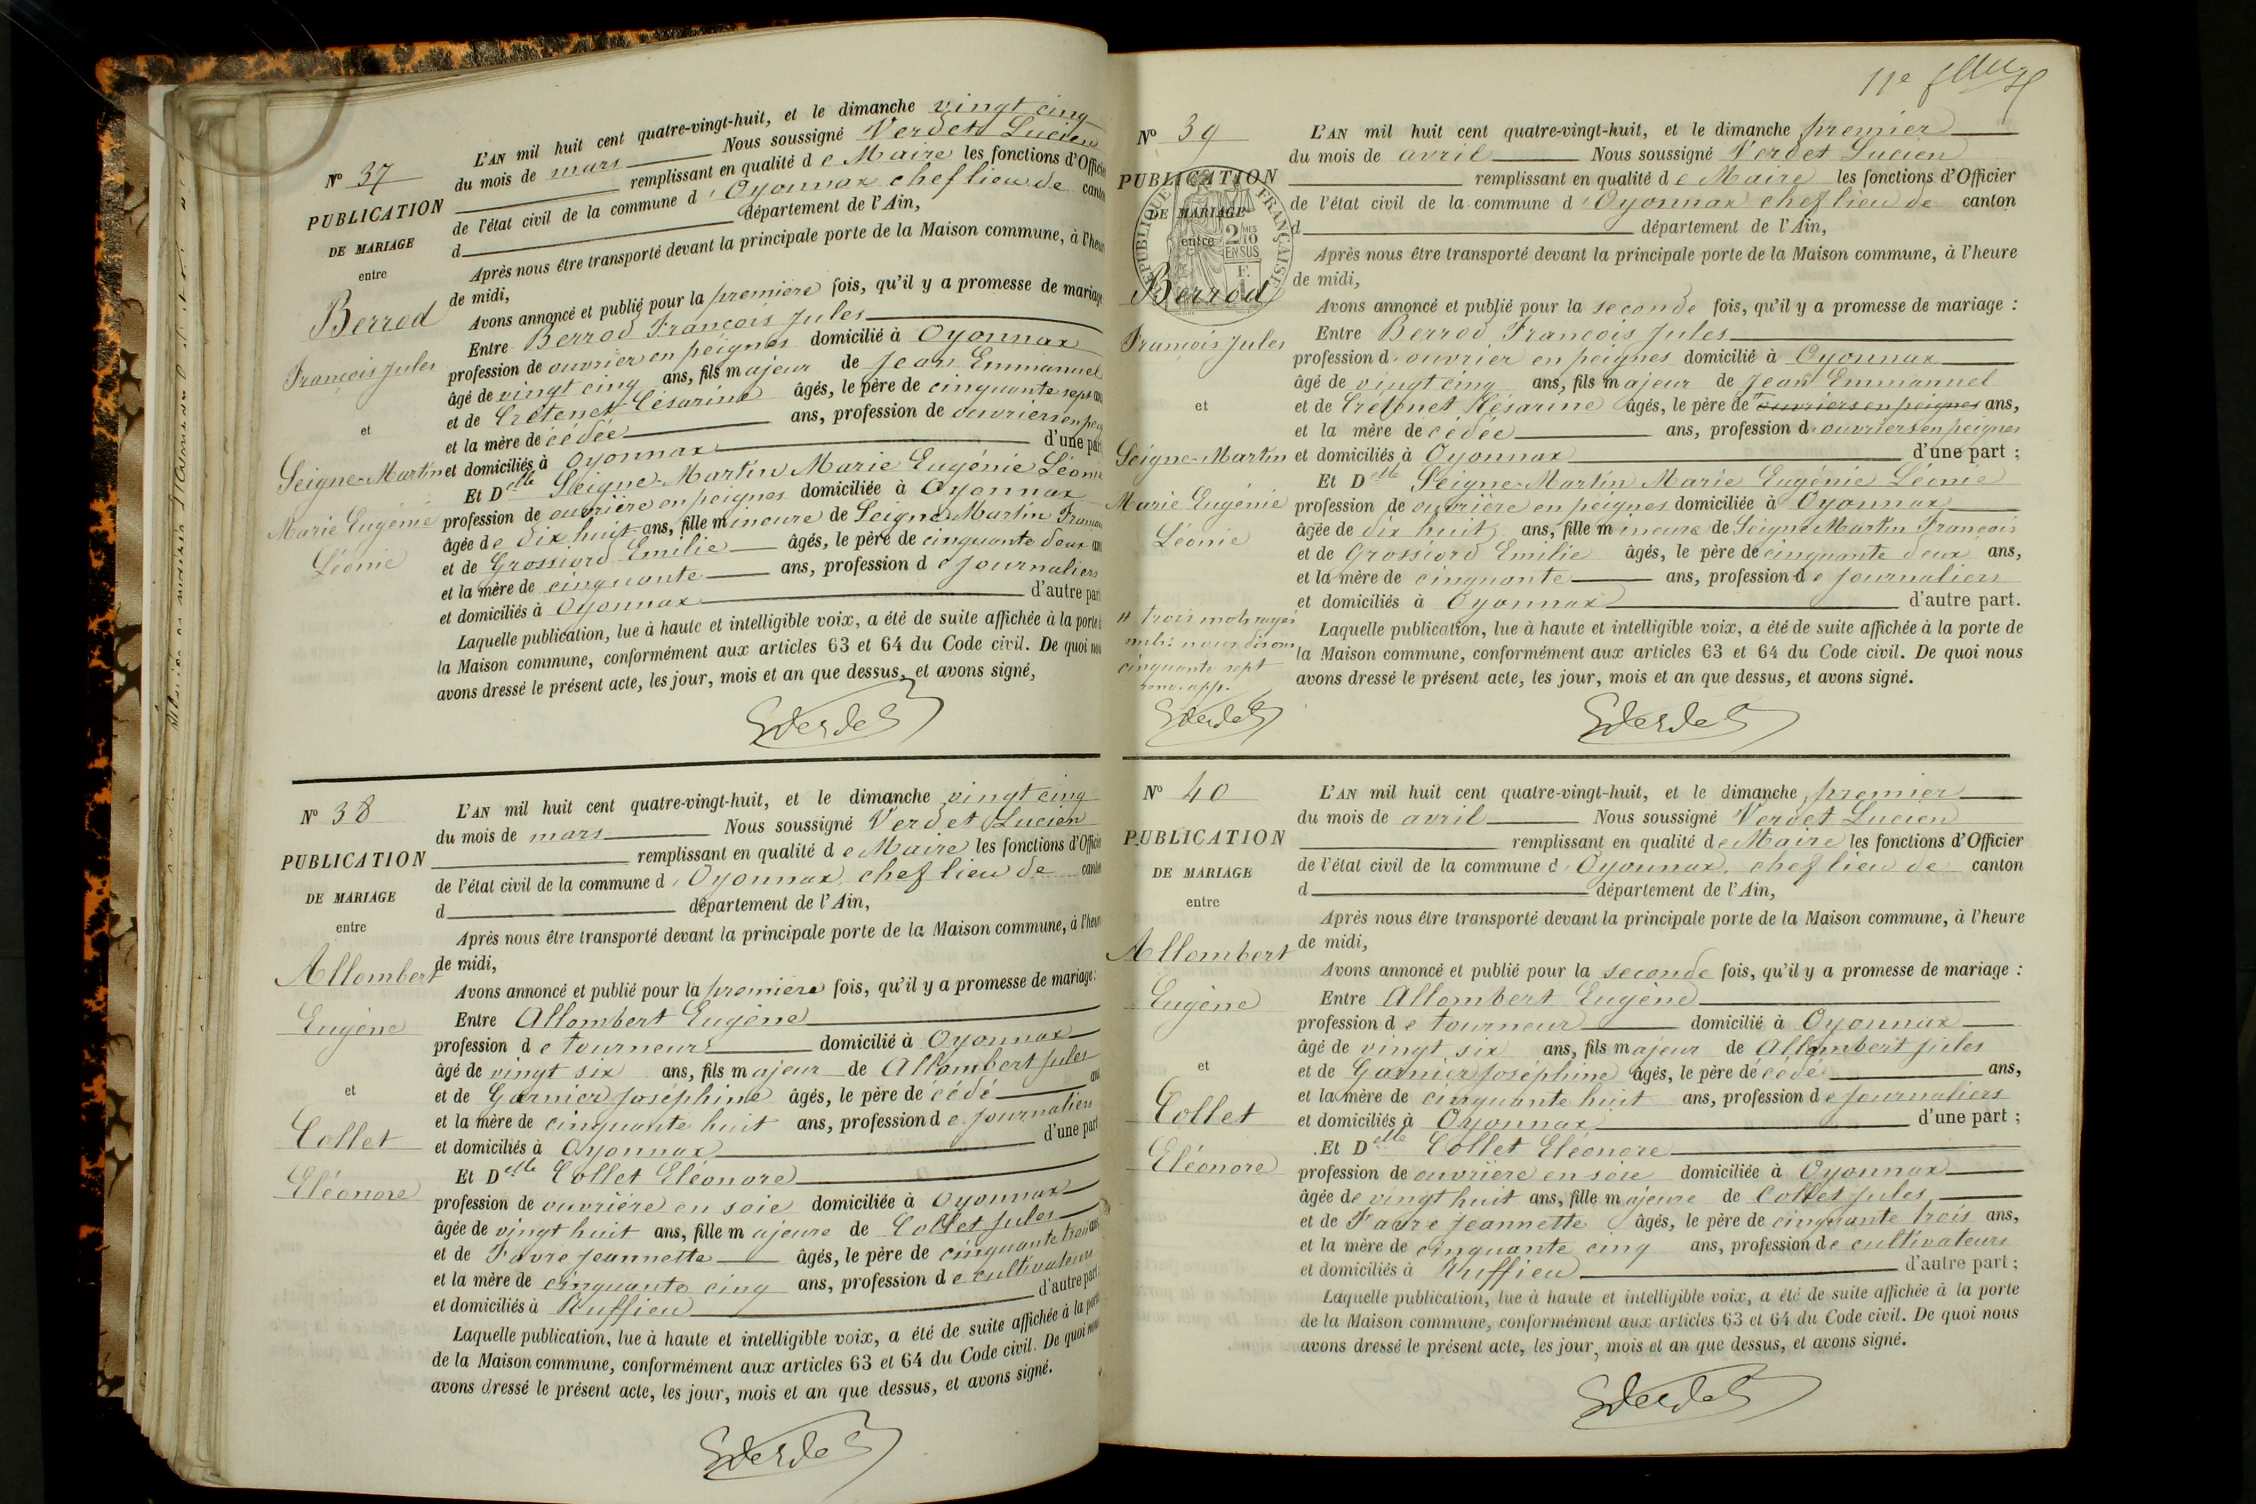 N° 37
PUBLICATION
DE MARIAGE
entre
Berrod
François Jules
et
Seigne-Martin
Marie Eugénie
Léonie
L'AN mil huit cent quatre-vingt-huit, et le dimanche vingt cinq
du mois de mars Nous soussigné Verdet Lucien
remplissant en qualité de Maire les fonctions d'Officier
de l'état civil de la commune d'Oyonnax chef lieu de canton
d département de l'Ain,
Après nous être transporté devant la principale porte de la Maison commune, à l'heure
de midi,
Avons annoncé et publié pour la première fois, qu'il y a promesse de mariage
Entre Berrod François Jules
profession de ouvrier en peignes domicilié à Oyonnax
âgé de vingt cinq ans, fils majeur de Jean Emmanuel
et de Crétenet Césarine âgés, le père de cinquante sept ans
et la mère décédée ans, profession de ouvriers en peig
et domiciliés à Oyonnax d'une part
Et Delle Seigne-Martin Marie Eugénie Léonie
profession de ouvrière en peignes domiciliée à Oyonnax
âgée de dix huit ans, fille mineure de Seigne-Martin François
et de Grossiord Emilie âgés, le père de cinquante deux ans
et la mère de cinquante ans, profession de journaliers
et domiciliés à Oyonnax d'autre part
Laquelle publication, lue à haute et intelligible voix, a été de suite affichée à la porte de
la Maison commune, conformément aux articles 63 et 64 du Code civil. De quoi nous
avons dressé le présent acte, les jour, mois et an que dessus, et avons signé,
LVerdet
N° 38
PUBLICATION
DE MARIAGE
entre
Allombert
Eugène
et
Collet
Eléonore
L'AN mil huit cent quatre-vingt-huit, et le dimanche vingt cinq
du mois de mars Nous soussigné Verdet Lucien
remplissant en qualité de Maire les fonctions d'Officier
de l'état civil de la commune d'Oyonnax chef lieu de canton
d département de l'Ain,
Après nous être transporté devant la principale porte de la Maison commune, à l'heure
de midi,
Avons annoncé et publié pour la première fois, qu'il y a promesse de mariage:
Entre Allombert Eugène
profession de tourneur domicilié à Oyonnax
âgé de vingt six ans, fils majeur de Allombert Jules
et de Garnier Joséphine âgés, le père décédé ans
et la mère de cinquante huit ans, profession de journaliers
et domiciliés à Oyonnax d'une part
Et Delle Collet Eléonore
profession de ouvrière en soie domiciliée à Oyonnax
âgée de vingt huit ans, fille majeure de Collet Jules
et de Favre Jeannette âgés, le père de cinquante trois ans
et la mère de cinquante cinq ans, profession de cultivateurs
et domiciliés à Ruffieu d'autre part
Laquelle publication, lue à haute et intelligible voix, a été de suite affichée à la porte
de la Maison commune, conformément aux articles 63 et 64 du Code civil. De quoi nous
avons dressé le présent acte, les jour, mois et an que dessus, et avons signé.
LVerdet
11e
N° 39
PUBLICATION
DE MARIAGE
entre
RÉPUBLIQUE FRANÇAISE
2/10 EN SUS
Berrod
François Jules
et
Seigne-Martin
Marie Eugénie
Léonie
L'AN mil huit cent quatre-vingt-huit, et le dimanche premier
du mois de avril Nous soussigné Verdet Lucien
remplissant en qualité de Maire les fonctions d'Officier
de l'état civil de la commune d'Oyonnax chef lieu de canton
d département de l'Ain,
Après nous être transporté devant la principale porte de la Maison commune, à l'heure
de midi,
Avons annoncé et publié pour la seconde fois, qu'il y a promesse de mariage :
Entre Berrod François Jules
profession d'ouvrier en peignes domicilié à Oyonnax
âgé de vingt cinq ans, fils majeur de Jean Emmanuel
et de Crétenet Césarine âgés, le père de ouvriers en peignes ans,
et la mère décédée ans, profession d'ouvriers en peignes
et domiciliés à Oyonnax d'une part ;
Et Delle Seigne-Martin Marie Eugénie Léonie
profession de ouvrière en peignes domiciliée à Oyonnax
âgée de dix huit ans, fille mineure de Seigne-Martin François
et de Grossiord Emilie âgés, le père de cinquante deux ans,
et la mère de cinquante ans, profession de journaliers
et domiciliés à Oyonnax d'autre part.
Laquelle publication, lue à haute et intelligible voix, a été de suite affichée à la porte de
la Maison commune, conformément aux articles 63 et 64 du Code civil. De quoi nous
avons dressé le présent acte, les jour, mois et an que dessus, et avons signé.
trois mots rayés
nuls: nous disons
cinquante sept
app.
LVerdet
LVerdet
N° 40
PUBLICATION
DE MARIAGE
entre
Allombert
Eugène
et
Collet
Eléonore
L'AN mil huit cent quatre-vingt-huit, et le dimanche premier
du mois de avril Nous soussigné Verdet Lucien
remplissant en qualité de Maire les fonctions d'Officier
de l'état civil de la commune d'Oyonnax chef lieu de canton
d département de l'Ain,
Après nous être transporté devant la principale porte de la Maison commune, à l'heure
de midi,
Avons annoncé et publié pour la seconde fois, qu'il y a promesse de mariage :
Entre Allombert Eugène
profession de tourneur domicilié à Oyonnax
âgé de vingt six ans, fils majeur de Allombert Jules
et de Garnier Joséphine âgés, le père décédé ans,
et la mère de cinquante huit ans, profession de journaliers
et domiciliés à Oyonnax d'une part ;
Et Delle Collet Eléonore
profession de ouvrière en soie domiciliée à Oyonnax
âgée de vingt huit ans, fille majeure de Collet Jules
et de Favre Jeannette âgés, le père de cinquante trois ans,
et la mère de cinquante cinq ans, profession de cultivateurs
et domiciliés à Ruffieu d'autre part ;
Laquelle publication, lue à haute et intelligible voix, a été de suite affichée à la porte
de la Maison commune, conformément aux articles 63 et 64 du Code civil. De quoi nous
avons dressé le présent acte, les jour, mois et an que dessus, et avons signé.
LVerdet